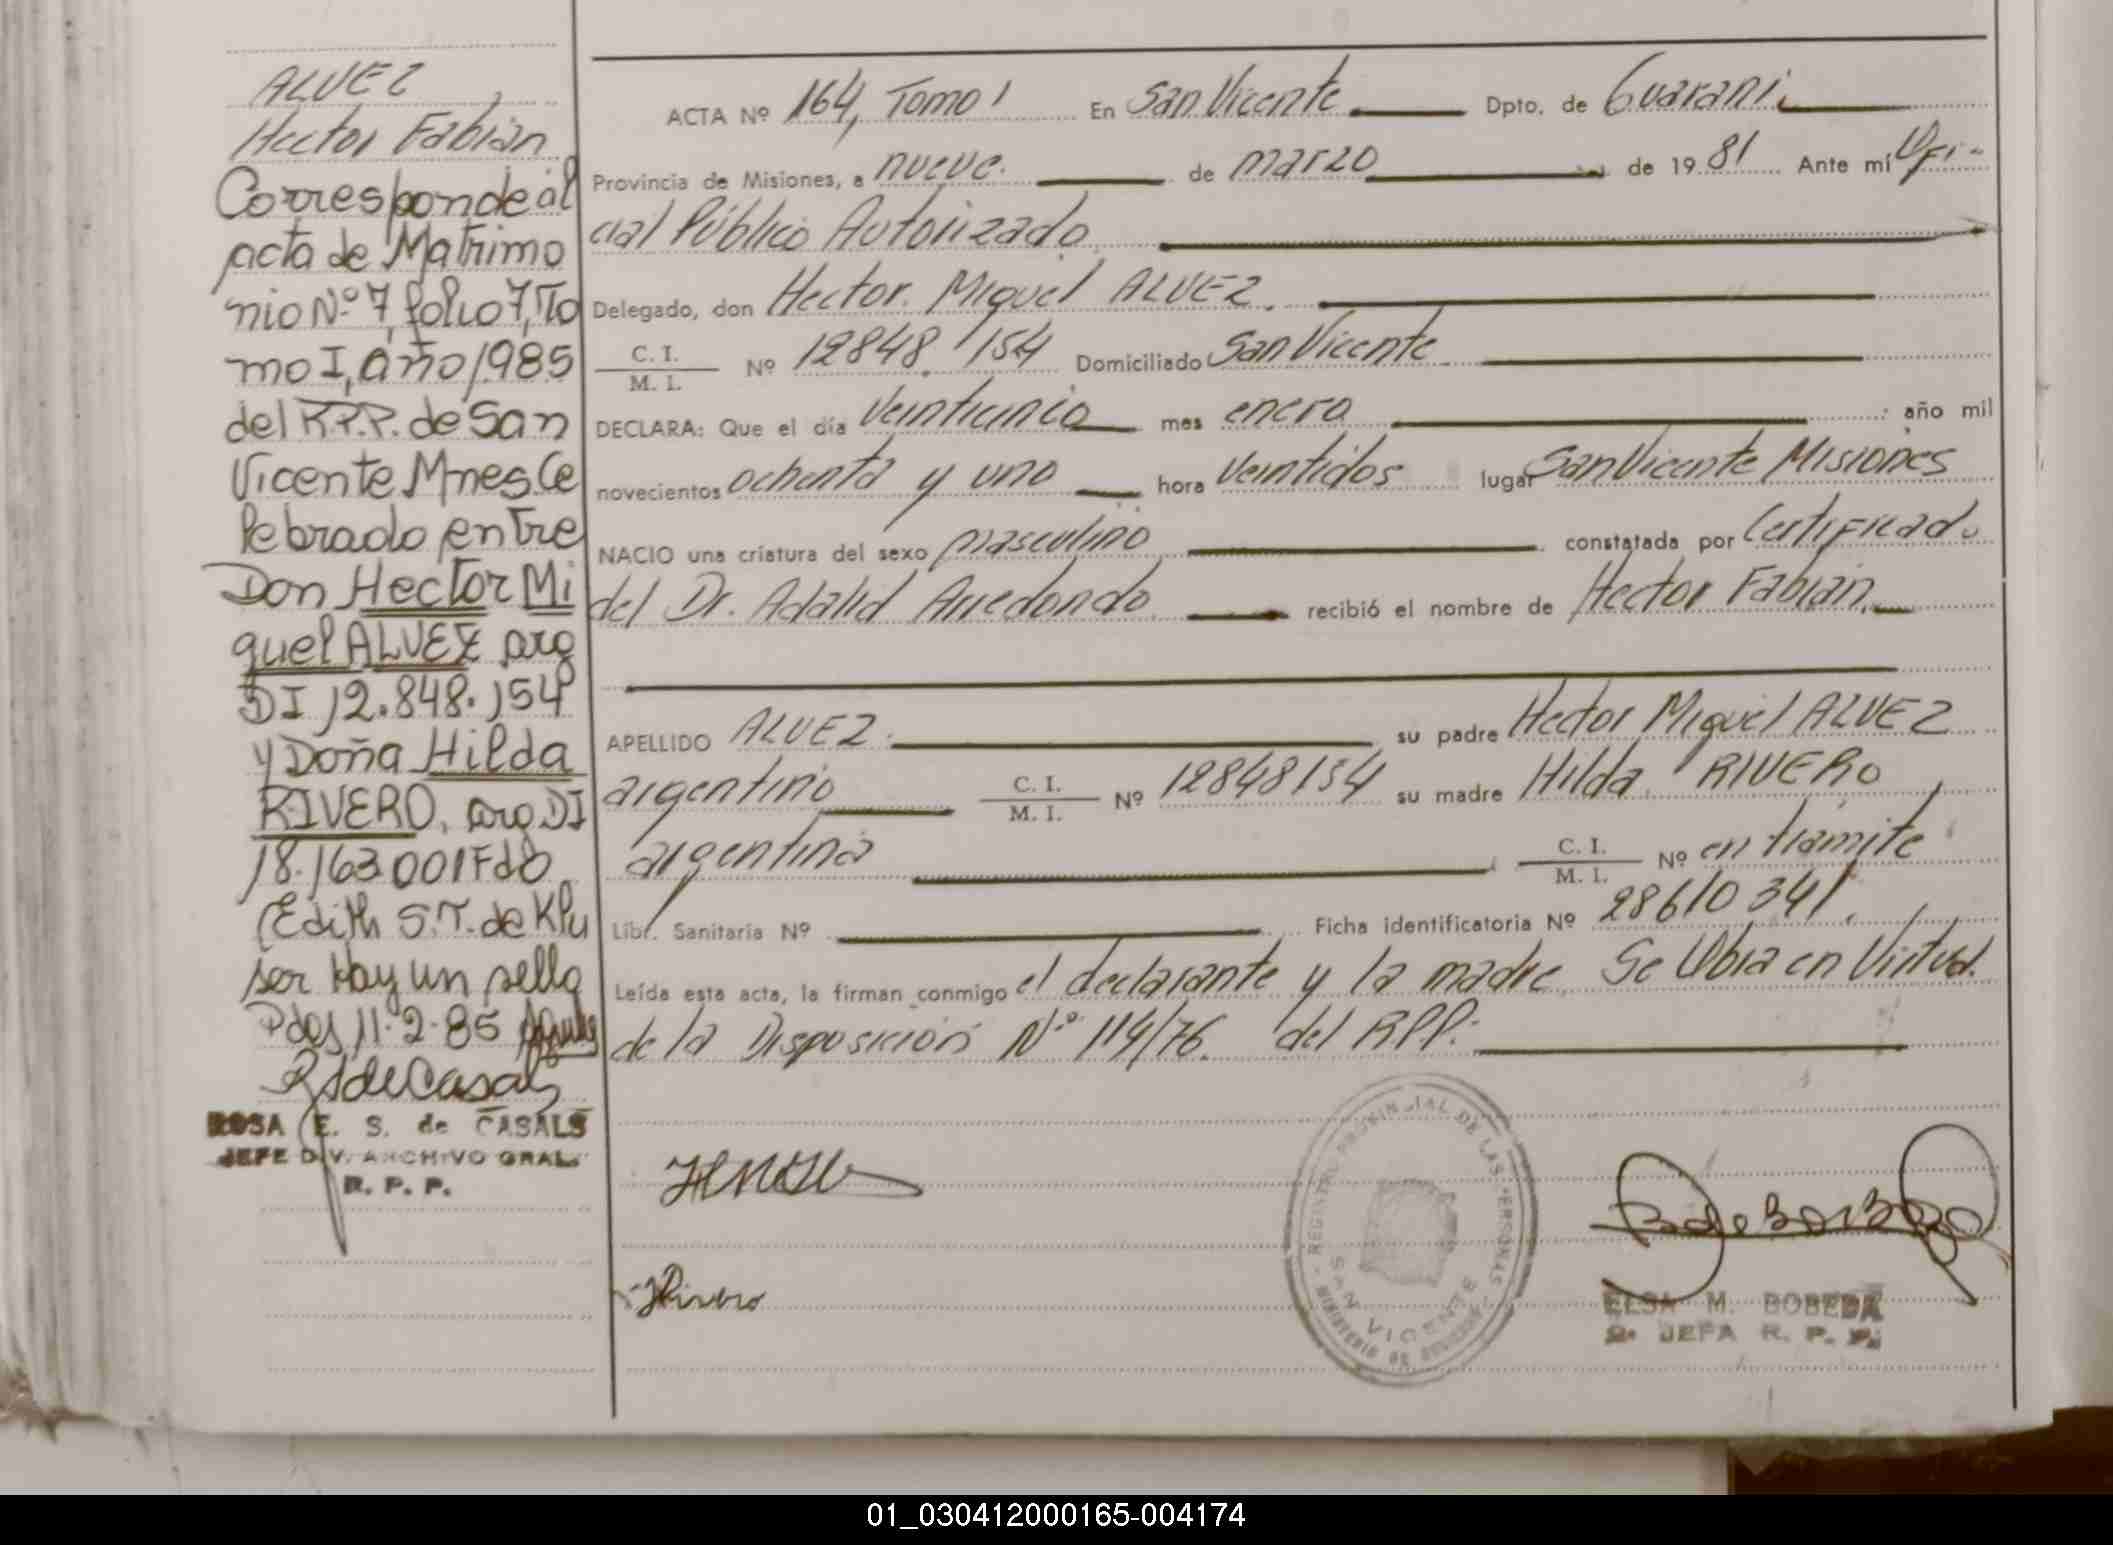 ALVEZ,
Hector Fabián
Corresponde al
acta de Matrimo
nio Nº 7, folio 7, To
mo I, año 1985
del R.P.P. de San
Vicente Mnes. Ce
lebrado entre
Don Hector Mi
guel ALVEZ arg
DI 12.848.154
y Doña Hilda
RIVERO, arg DI
18.163.001 Fdo
Edith S.T. de Klu
ser Hay un sello
Pdas 11-2-85
RSdeCasals
ROSA E. S. de CASALS
JEFE DIV. ARCHIVO GRAL.
R. P. P.
ACTA Nº 164, Tomo I En San Vicente Dpto. de Guaraní
Provincia de Misiones, a nueve. de marzo de 19 81 Ante mí Ofi-
cial Público Autorizado
Delegado, don Hector Miguel ALVEZ.
C. I. / M. I. Nº 12848.154 Domiciliado San Vicente
DECLARA: Que el día Veinticinco mes enero año mil
novecientos ochenta y uno hora Veintidos lugar San Vicente Misiones
NACIO una criatura del sexo masculino constatada por Certificado
del Dr. Adalid Arredondo recibió el nombre de Hector Fabián,
APELLIDO ALVEZ su padre Hector Miguel ALVEZ
argentino C. I. / M. I. Nº 12848154 su madre Hilda RIVERO,
argentina C. I. / M. I. Nº en trámite
Libr. Sanitaria Nº Ficha identificatoria Nº 28610341.
Leída esta acta, la firman conmigo el declarante y la madre. Se Labra en Virtud.
de la Disposición Nº 114/76. del RPP.
REGISTRO PROVINCIAL DE LAS PERSONAS
MINISTERIO DE GOBIERNO
SAN VICENTE
HRivero
ELSA M. BOBEDA
2º JEFA R. P. P.
01_030412000165-004174